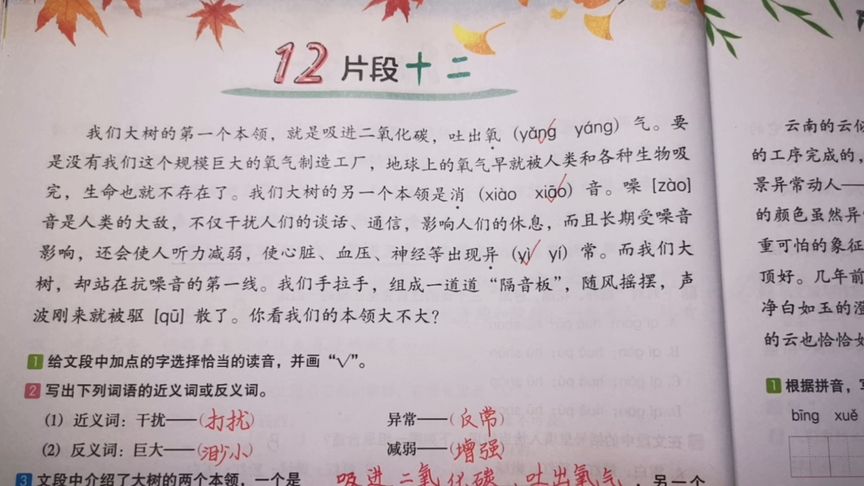 12 片段十二
我们大树的第一个本领，就是吸进二氧化碳，吐出氧（yǎng yáng）气。要
是没有我们这个规模巨大的氧气制造工厂，地球上的氧气早就被人类和各种生物吸
完，生命也就不存在了。我们大树的另一个本领是消（xiào xiāo）音。噪 [zào]
音是人类的大敌，不仅干扰人们的谈话、通信，影响人们的休息，而且长期受噪音
影响，还会使人听力减弱，使心脏、血压、神经等出现异（yì yí）常。而我们大
树，却站在抗噪音的第一线。我们手拉手，组成一道道“隔音板”，随风摇摆，声
波刚来就被驱 [qū] 散了。你看我们的本领大不大？
1 给文段中加点的字选择恰当的读音，并画“√”。
2 写出下列词语的近义词或反义词。
(1) 近义词：干扰——(打扰) 异常——(反常)
(2) 反义词：巨大——(渺小) 减弱——(增强)
3 文段中介绍了大树的两个本领，一个是 吸进二氧化碳，吐出氧气 ，另一个
云南的云似
的工序完成的，
景异常动人——
的颜色虽然异
重可怕的象征
顶好。几年前
净白如玉的澄
的云也恰恰如
1 根据拼音，写
bīng xuě